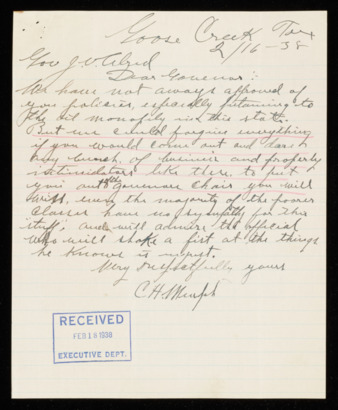 Goose Creek Tex
2/16-38
Gov J. V. Allred
Dear Govenor:
We have not always approved of
your policies, especially pertaining to
the oil monoply in this state.
But we could forgive everything
if you would come out and
any bunch of business and property
like these to put
you out of the governors chair you will
miss, even the majority of the poorer
classes have no sympathy for this
stuff, and will admire the official
who will shake a fist at the things
he knows is unjust.
Very respectfully yours
C H Murph
RECEIVED
FEB 18 1938
EXECUTIVE DEPT.